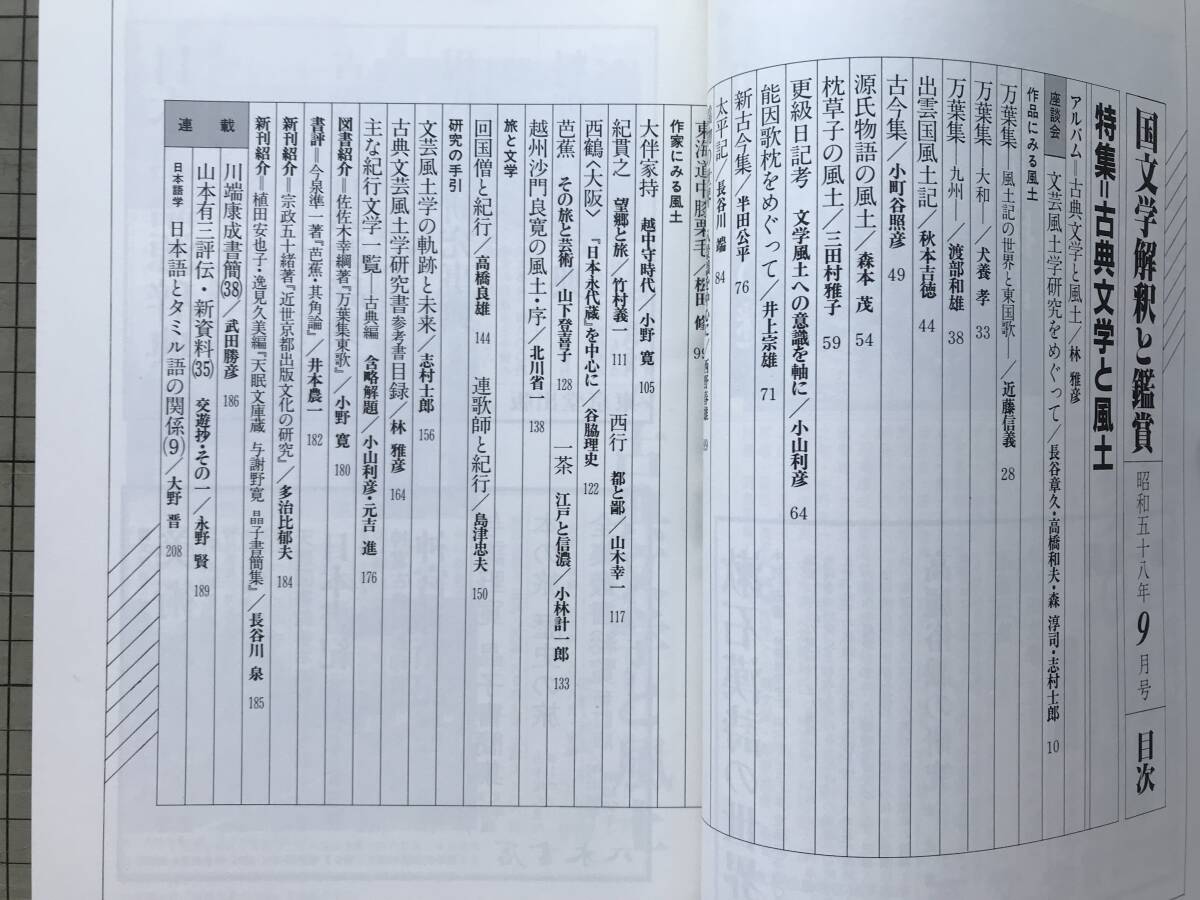 国文学解釈と鑑賞 昭和五十八年9月号 目次
特集=古典文学と風土
アルバム=古典文学と風土/林 雅彦
座談会 文芸風土学研究をめぐって/長谷章久・高橋和夫・森 淳司・志村士郎 10
作品にみる風土
万葉集―風土記の世界と東国歌―/近藤信義 28
万葉集―大和―/犬養 孝 33
万葉集―九州―/渡部和雄 38
出雲国風土記/秋本吉徳 44
古今集/小町谷照彦 49
源氏物語の風土/森本 茂 54
枕草子の風土/三田村雅子 59
更級日記考 文学風土への意識を軸に/小山利彦 64
能因歌枕をめぐって/井上宗雄 71
新古今集/半田公平 76
太平記/長谷川 端 84
東海道中膝栗毛/松田 修 99
作家にみる風土
大伴家持 越中守時代/小野 寛 105
紀貫之 望郷と旅/竹村義一 111
西行 都と鄙/山木幸一 117
西鶴〈大阪〉 『日本永代蔵』を中心に/谷脇理史 122
芭蕉 その旅と芸術/山下登喜子 128
一茶 江戸と信濃/小林計一郎 133
越州沙門良寛の風土・序/北川省一 138
旅と文学
回国僧と紀行/高橋良雄 144
連歌師と紀行/島津忠夫 150
研究の手引
文芸風土学の軌跡と未来/志村士郎 156
古典文芸風土学研究書参考書目録/林 雅彦 164
主な紀行文学一覧―古典編 含略解題/小山利彦・元吉 進 176
図書紹介=佐佐木幸綱著『万葉集東歌』/小野 寛 180
書評=今泉準一著『芭蕉・其角論』/井本農一 182
新刊紹介=宗政五十緒著『近世京都出版文化の研究』/多治比郁夫 184
新刊紹介=植田安也子・逸見久美編『天眠文庫蔵 与謝野寛 晶子書簡集』/長谷川 泉 185
連載
川端康成書簡(38)/武田勝彦 186
山本有三評伝・新資料(35) 交遊抄・その一/永野 賢 189
日本語学 日本語とタミル語の関係(9)/大野 晋 208